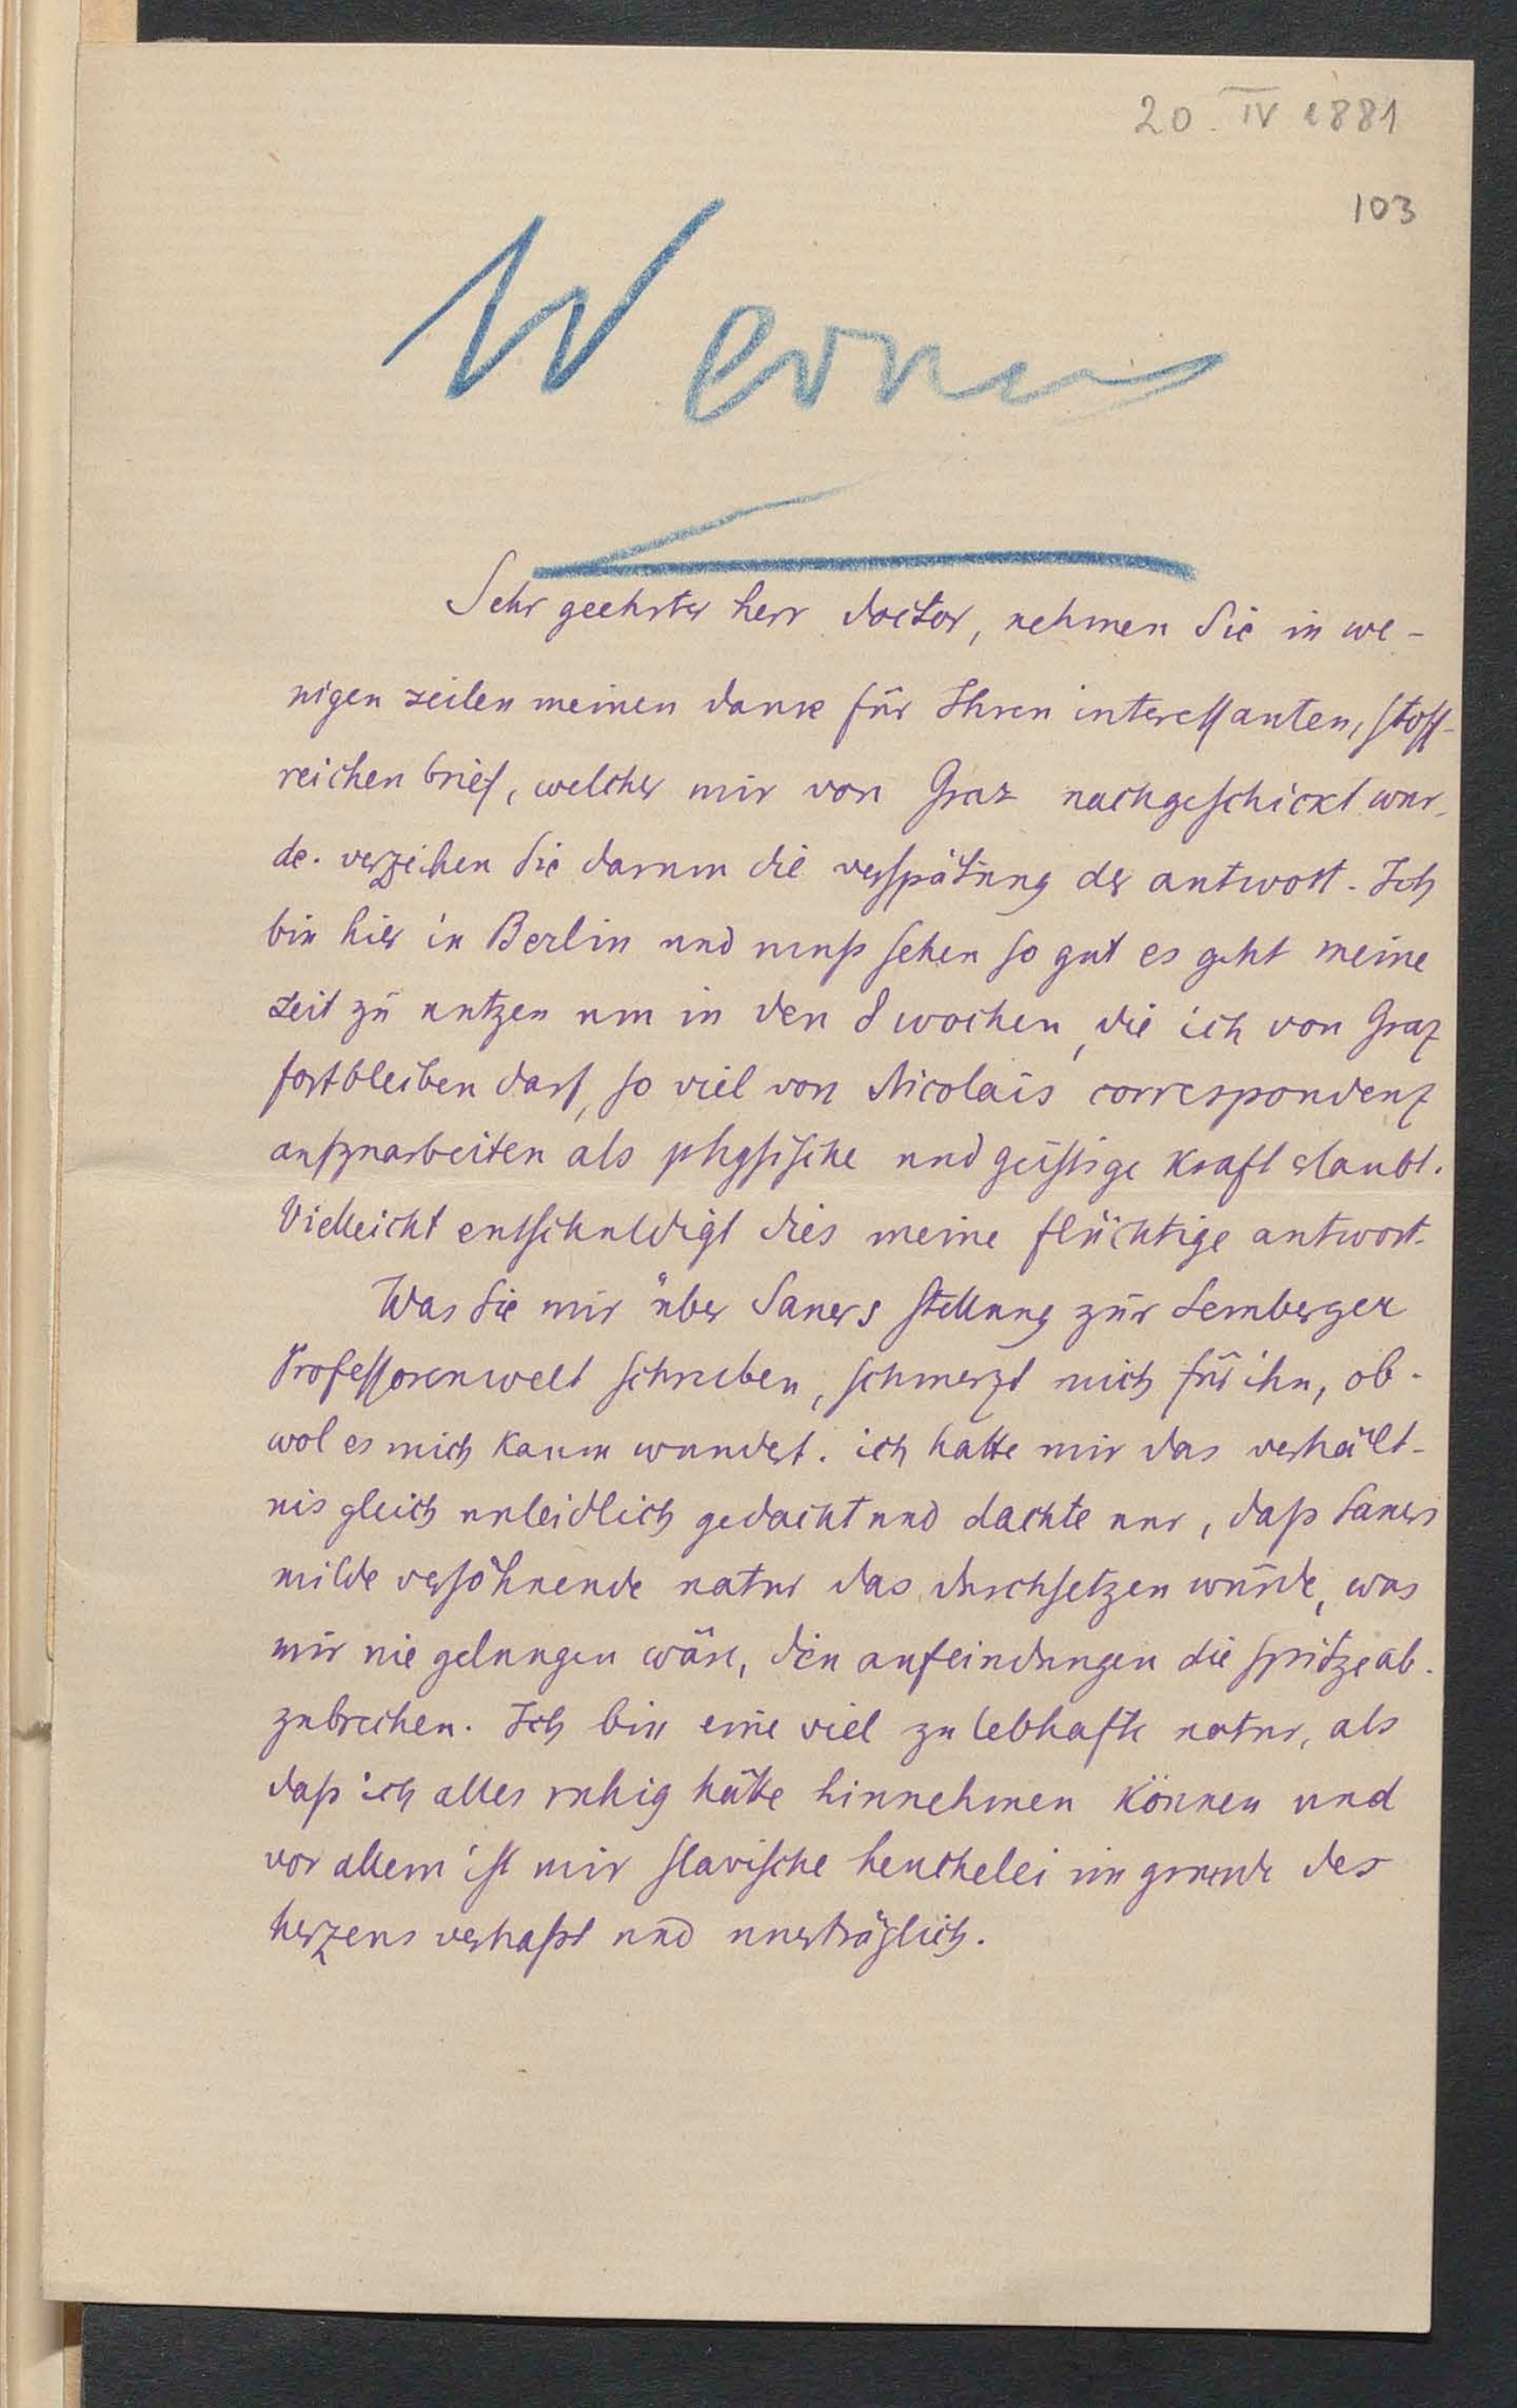 20. IV 1881
103
Werner
Sehr geehrter herr doctor, nehmen Sie in we-
nigen zeilen meinen dank für Ihren interessanten, stoff-
reichen brief, welcher mir von Graz nachgeschickt wur-
de. verzeihen Sie darum die verspätung der antwort. Ich
bin hier in Berlin und muß sehen so gut es geht meine
zeit zu nutzen um in den 8 wochen, die ich von Graz
fortbleiben darf, so viel von Nicolais correspondenz
aufzuarbeiten als physische und geistige kraft erlaubt.
Vielleicht entschuldigt dies meine flüchtige antwort.
Was Sie mir über Sauers stellung zur Lemberger
Professorenwelt schreiben, schmerzt mich für ihn, ob-
wol es mich kaum wundert. ich hatte mir das verhält-
nis gleich unleidlich gedacht und dachte nur, daß Sauers
milde versöhnende natur das durchsetzen würde, was
mir nie gelungen wäre, den anfeindungen die spitze ab-
zubrechen. Ich bin eine viel zu lebhafte natur, als
daß ich alles ruhig hätte hinnehmen können und
vor allem ist mir slavische heuchelei im grunde des
herzens verhaßt und unerträglich.